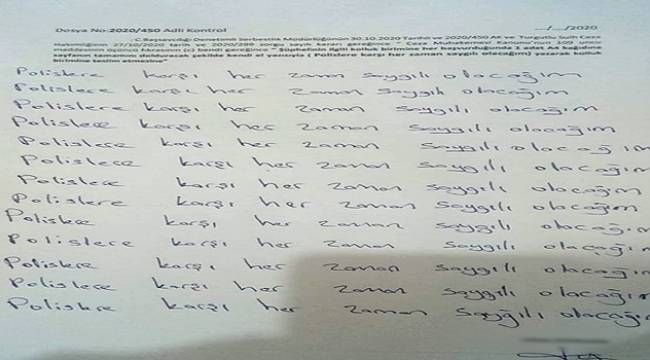 Dosya No:2020/450 Adli Kontrol
../..../2020
C.Başsavcılığı Denetimli Serbestlik Müdürlüğünün 30.10.2020 Tarihli ve 2020/450 AK ve Turgutlu Sulh Ceza
Hakimliğinin 27/10/2020 tarih ve 2020/299 sorgu sayılı kararı gereğince " Ceza Muhakemesi Kanunu'nun 109 uncu
maddesinin üçüncü fıkrasının (c) bendi gereğince " Şüphelinin ilgili kolluk birimine her başvurduğunda 1 adet A4 kağıdına
sayfanın tamamını dolduracak şekilde kendi el yazısıyla ( Polislere karşı her zaman saygılı olacağım) yazarak kolluk
birimine teslim etmesine"
Polislere karşı her zaman saygılı olacağım
Polislere karşı her zaman saygılı olacağım
Polislere karşı her zaman saygılı olacağım
Polislere karşı her zaman saygılı olacağım
Polislere karşı her zaman saygılı olacağım
Polislere karşı her zaman saygılı olacağım
Polislere karşı her zaman saygılı olacağım
Polislere karşı her zaman saygılı olacağım
Polislere karşı her zaman saygılı olacağım
Polislere karşı her zaman saygılı olacağım
Polislere karşı her zaman saygılı olacağım
Polislere karşı her zaman saygılı olacağım
Polislere karşı her zaman sayğılı olacağım